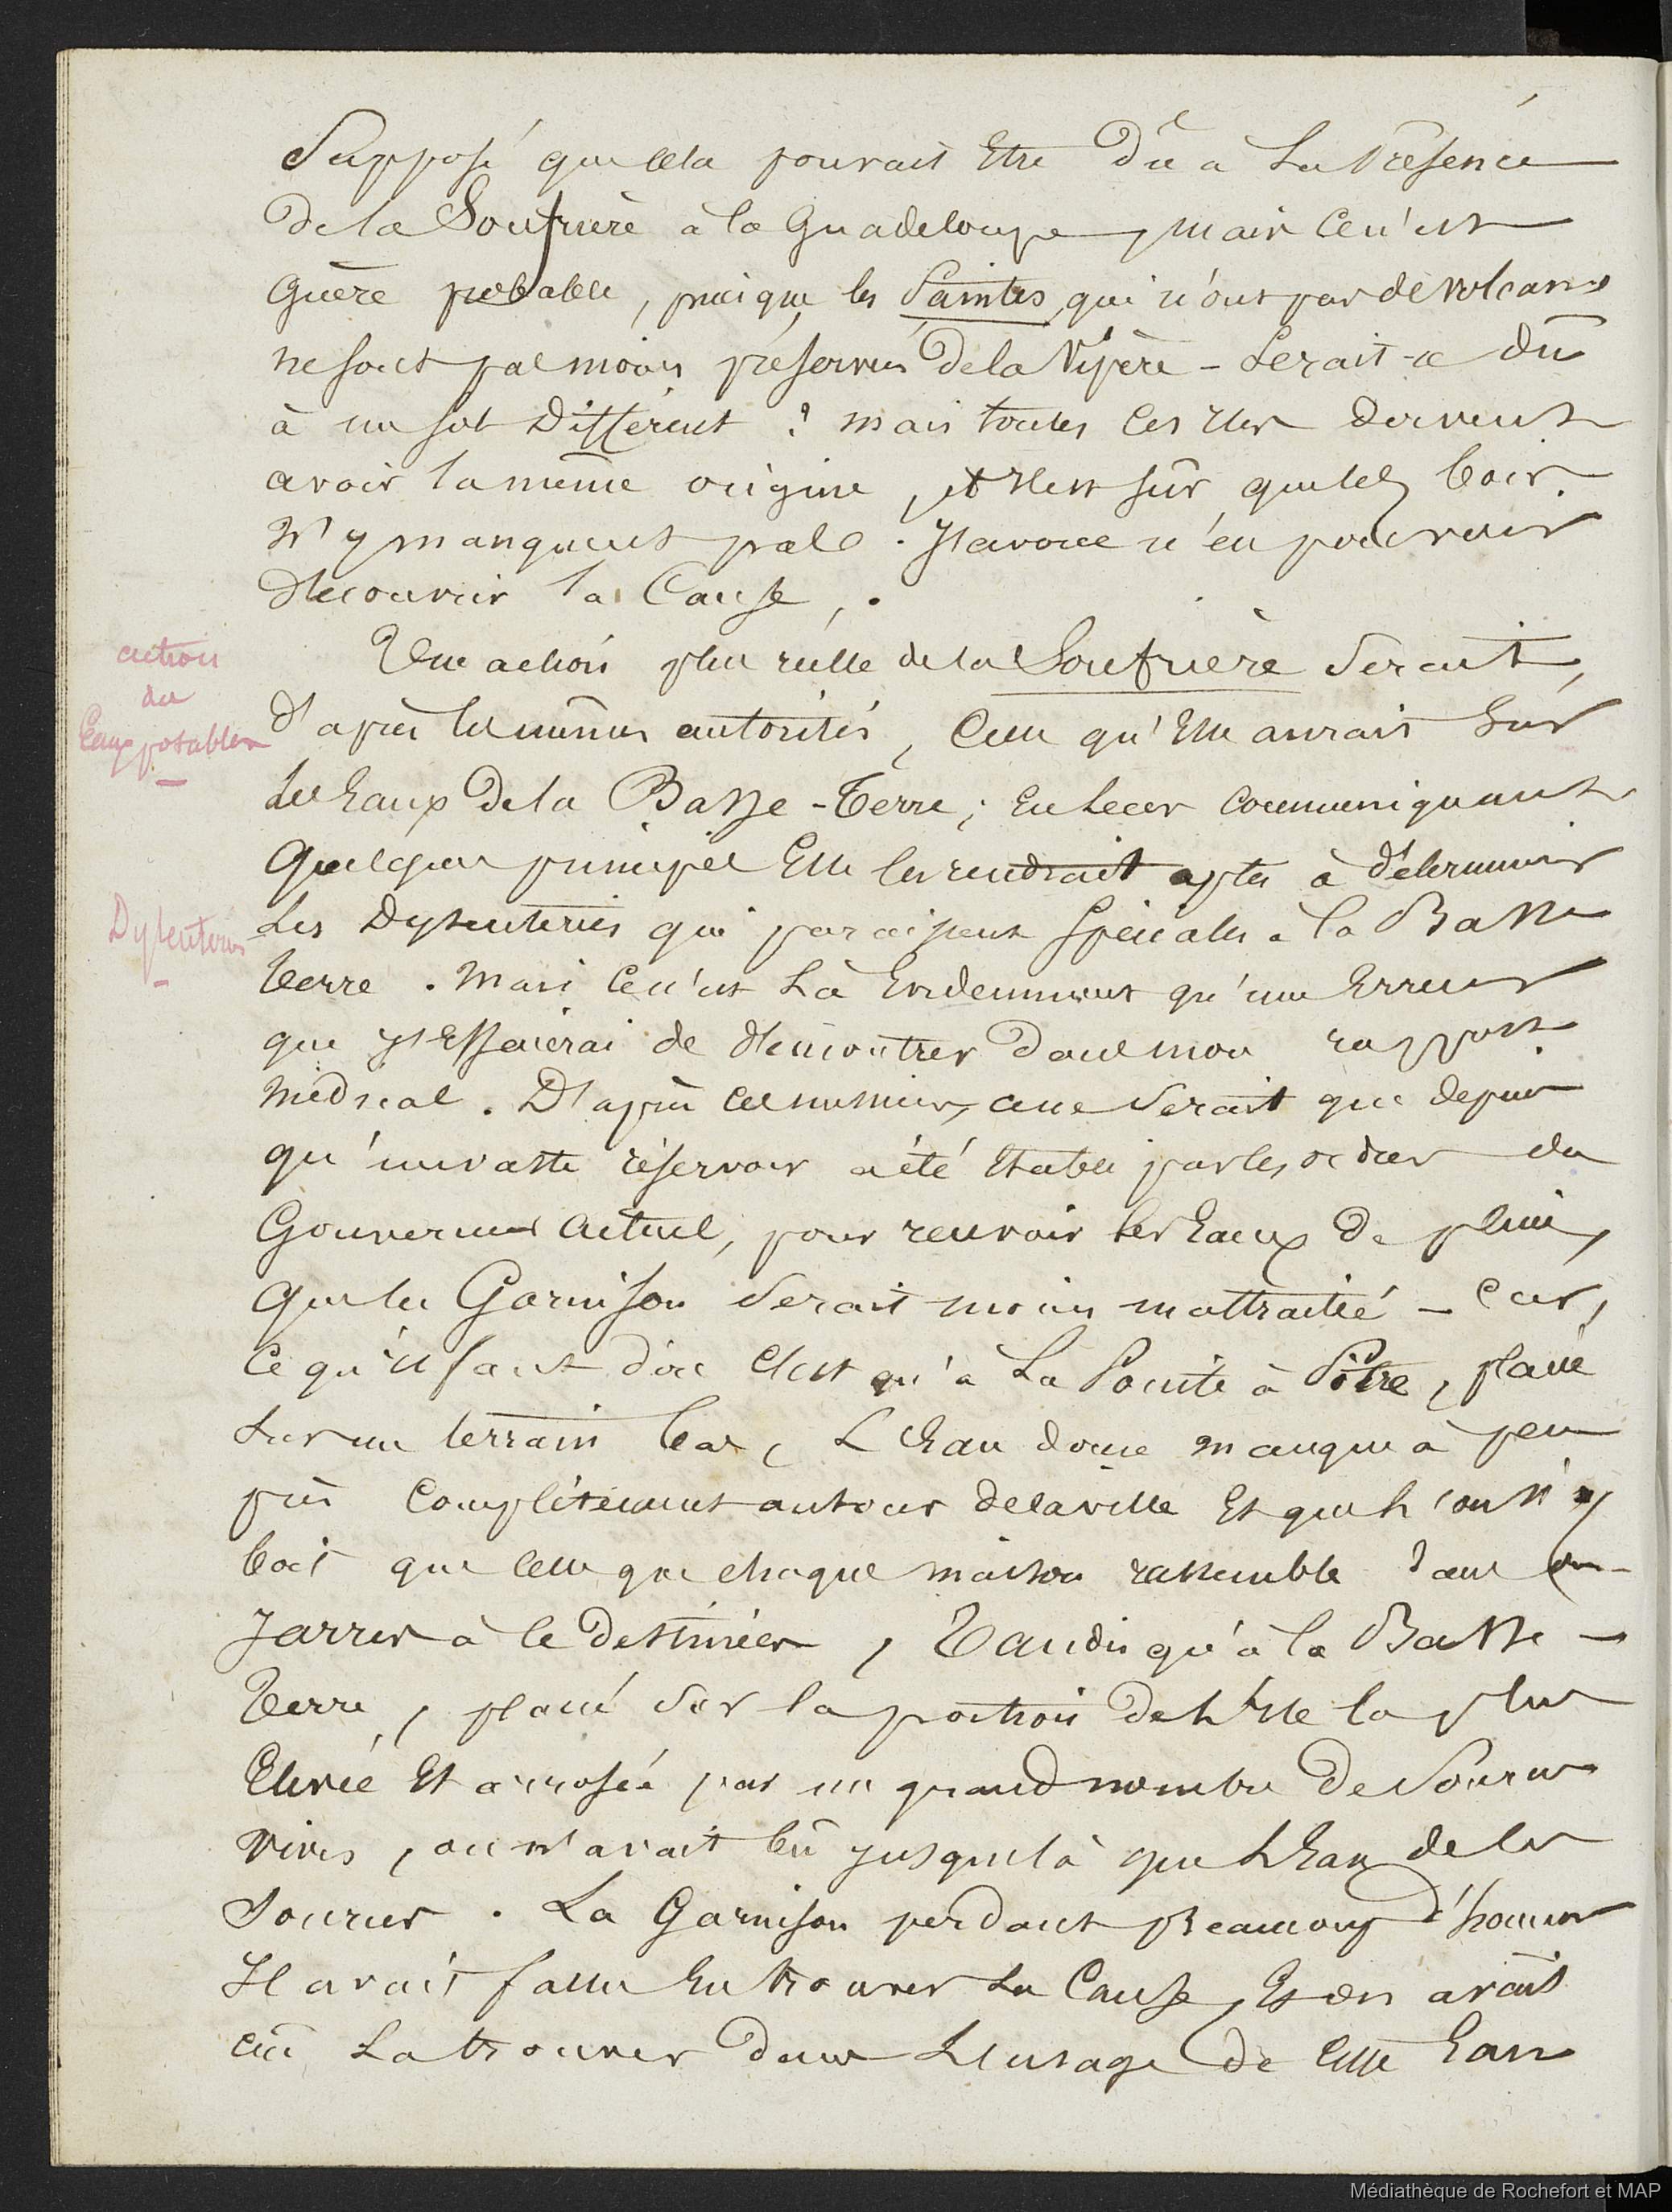 Supposé que cela pouvait Etre Dû à La Présence
De la Soufrière à la Guadeloupe, mais ce n'est
Guère probable, puisque les Saintes, qui n'ont pas de volcans
ne sont pas moins préservés De la Vipère - Serait-ce dû
à un sol Différent ? mais toutes ces Iles doivent
avoir la même origine, et Il est sûr que les bois
N'y manquent pas. J'avoue n'en pouvoir
découvrir la Cause.
action
des
Eaux potables
Une action plus réelle de la Soufrière Serait,
d'après les mêmes autorités, Celle qu'Elle aurait Sur
Les Eaux De la Basse-Terre; En Leur communiquant
Quelques principes Elle les rendrait aptes à déterminer
Dysenteries
Les Dysenteries qui paraissent Spéciales à la Basse
terre. Mais Ce n'est Là Evidemment qu'une Erreur
que j'Essaierai de démontrer Dans mon rapport
Médical. D'après ces messieurs, ce ne Serait que depuis
qu'un vaste réservoir a été Etabli par les ordres du
Gouverneur Actuel, pour recevoir les Eaux De pluie,
Que la Garnison Serait moins maltraitée - Car,
Ce qu'il faut dire C'est qu'à La Pointe à Pitre, placée
Sur un terrain bas, L'Eau douce manque à peu
près Complètement autour de la ville Et que L'on N'y
boit que celle que chaque maison rassemble dans des
Jarres à ce Destinées, Tandis qu'à la Basse-
Terre, placée Sur la portion De L'Ile la plus
Elevée Et arrosée par un grand nombre De Sources
vives, on n'avait bû jusques là que L'Eau de ces
Sources. La Garnison perdant Beaucoup d'hommes
Il avait fallu En trouver La Cause, Et on avait
crû La trouver dans L'usage de Cette Eau
Médiathèque de Rochefort et MAP